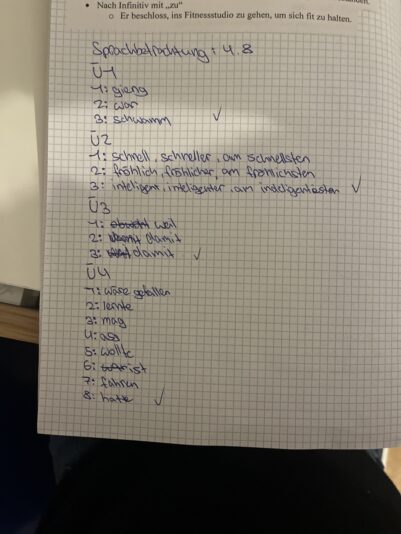 • Nach Infinitiv mit „zu“
o Er beschloss, ins Fitnessstudio zu gehen, um sich fit zu halten.
Sprachbetrachtung: 4.8
Ü1
1: gieng
2: war
3: schwamm ✓
Ü2
1: schnell, schneller, am schnellsten
2: fröhlich, fröhlicher, am fröhlichsten
3: inteligent, inteligenter, am indeligentesten ✓
Ü3
1: weil
2: damit
3: damit ✓
Ü4
1: wäre gefallen
2: lernte
3: mag
4: ass
5: wollte
6: ist
7: fahren
8: hatte ✓